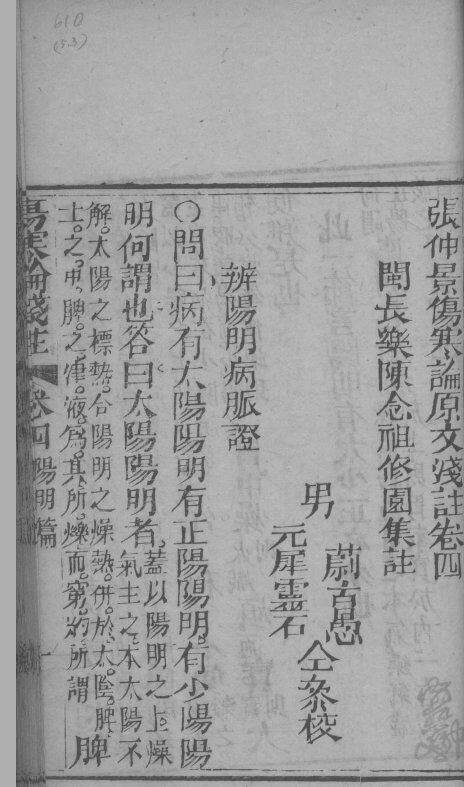 61Q
(5.3)
張仲景傷寒論原文淺註卷四
閩長樂陳念祖修園集註
男
蔚古愚
元犀靈石
仝叅校
辨陽明病脈證
○問曰病有太陽陽明有正陽陽明有少陽陽
明何謂也答曰太陽陽明者蓋以陽明之上燥
氣主之本太陽不
解太陽之標熱合陽明之燥熱併於太陰脾
土之中脾之津液爲其所爍而窮約所謂
脾
傷寒論淺註
卷四
陽明篇
一